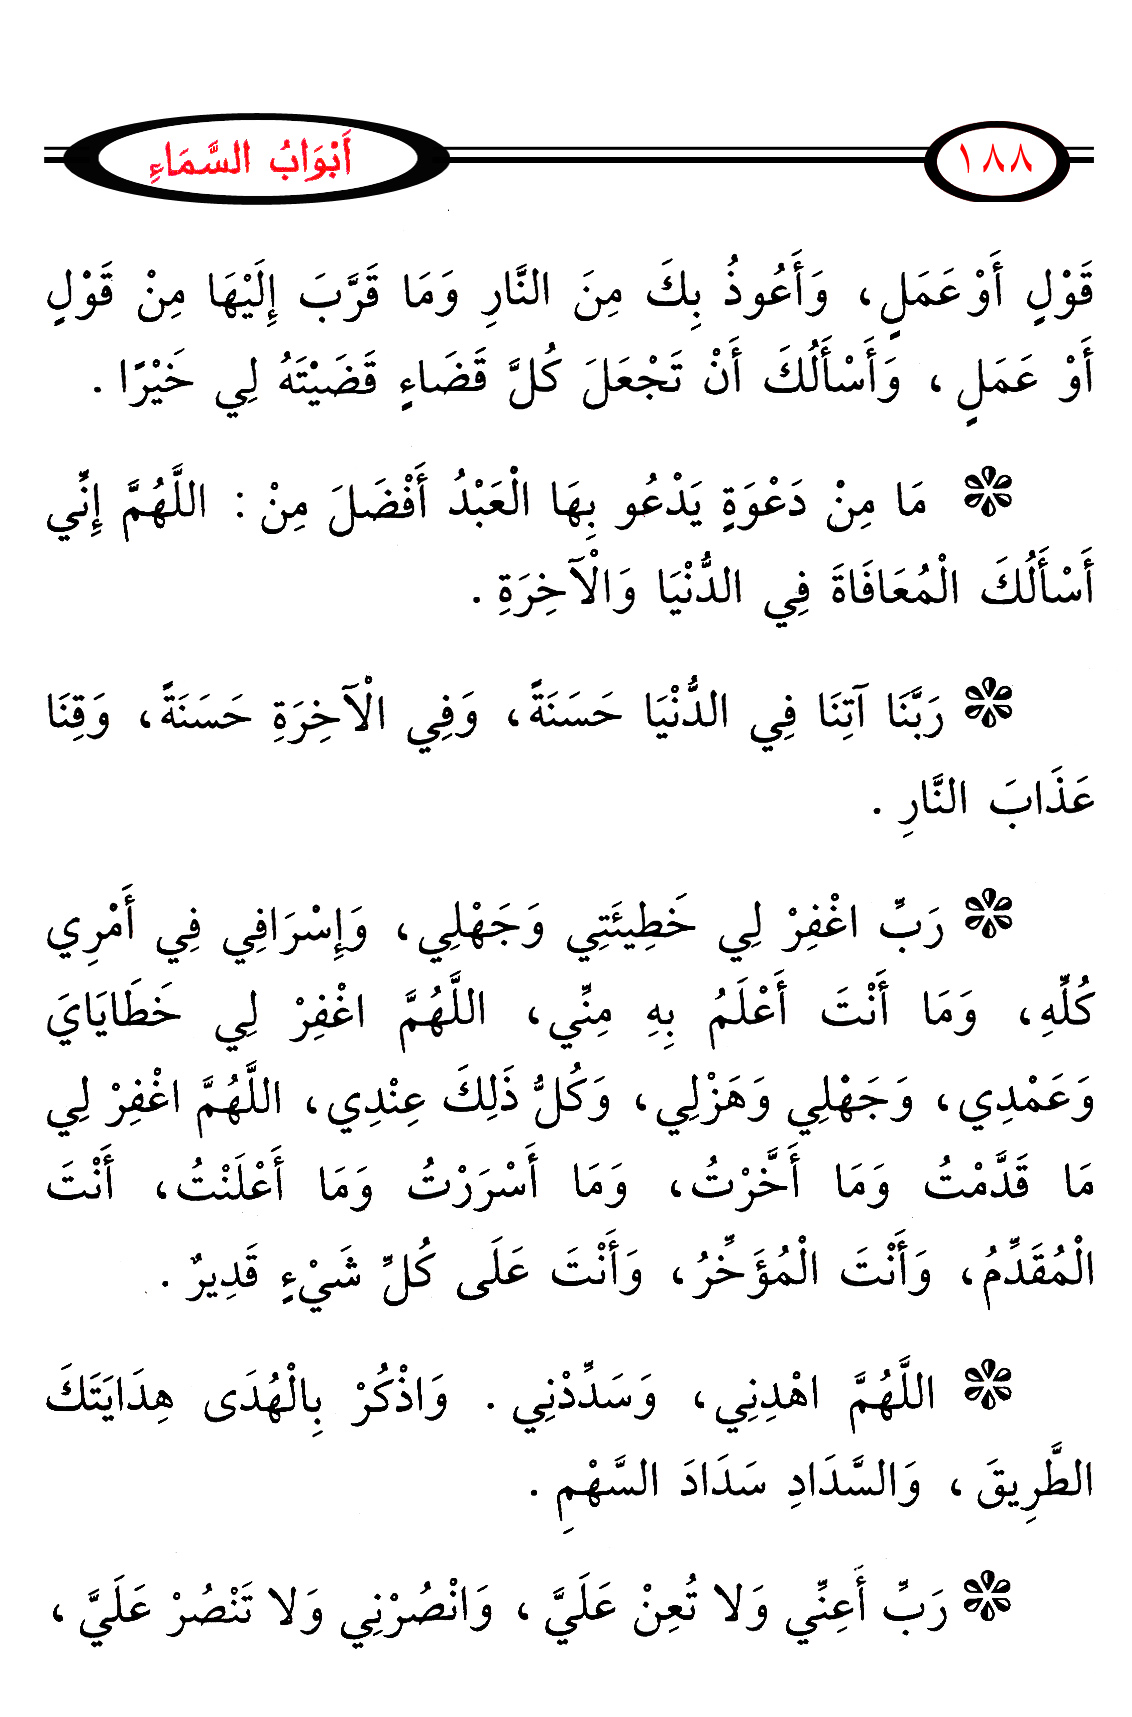 ١٨٨
أَبْوَابُ السَّمَاءِ
قَوْلٍ أَوْ عَمَلٍ، وَأَعُوذُ بِكَ مِنَ النَّارِ وَمَا قَرَّبَ إِلَيْهَا مِنْ قَوْلٍ
أَوْ عَمَلٍ، وَأَسْأَلُكَ أَنْ تَجْعَلَ كُلَّ قَضَاءٍ قَضَيْتَهُ لِي خَيْرًا .
❊ مَا مِنْ دَعْوَةٍ يَدْعُو بِهَا الْعَبْدُ أَفْضَلَ مِنْ : اللَّهُمَّ إِنِّي
أَسْأَلُكَ الْمُعَافَاةَ فِي الدُّنْيَا وَالْآخِرَةِ .
❊ رَبَّنَا آتِنَا فِي الدُّنْيَا حَسَنَةً، وَفِي الْآخِرَةِ حَسَنَةً، وَقِنَا
عَذَابَ النَّارِ .
❊ رَبِّ اغْفِرْ لِي خَطِيئَتِي وَجَهْلِي، وَإِسْرَافِي فِي أَمْرِي
كُلِّهِ، وَمَا أَنْتَ أَعْلَمُ بِهِ مِنِّي، اللَّهُمَّ اغْفِرْ لِي خَطَايَايَ
وَعَمْدِي، وَجَهْلِي وَهَزْلِي، وَكُلُّ ذَلِكَ عِنْدِي، اللَّهُمَّ اغْفِرْ لِي
مَا قَدَّمْتُ وَمَا أَخَّرْتُ، وَمَا أَسْرَرْتُ وَمَا أَعْلَنْتُ، أَنْتَ
الْمُقَدِّمُ، وَأَنْتَ الْمُؤَخِّرُ، وَأَنْتَ عَلَى كُلِّ شَيْءٍ قَدِيرٌ .
❊ اللَّهُمَّ اهْدِنِي، وَسَدِّدْنِي . وَاذْكُرْ بِالْهُدَى هِدَايَتَكَ
الطَّرِيقَ، وَالسَّدَادِ سَدَادَ السَّهْمِ .
❊ رَبِّ أَعِنِّي وَلا تُعِنْ عَلَيَّ، وَانْصُرْنِي وَلا تَنْصُرْ عَلَيَّ،